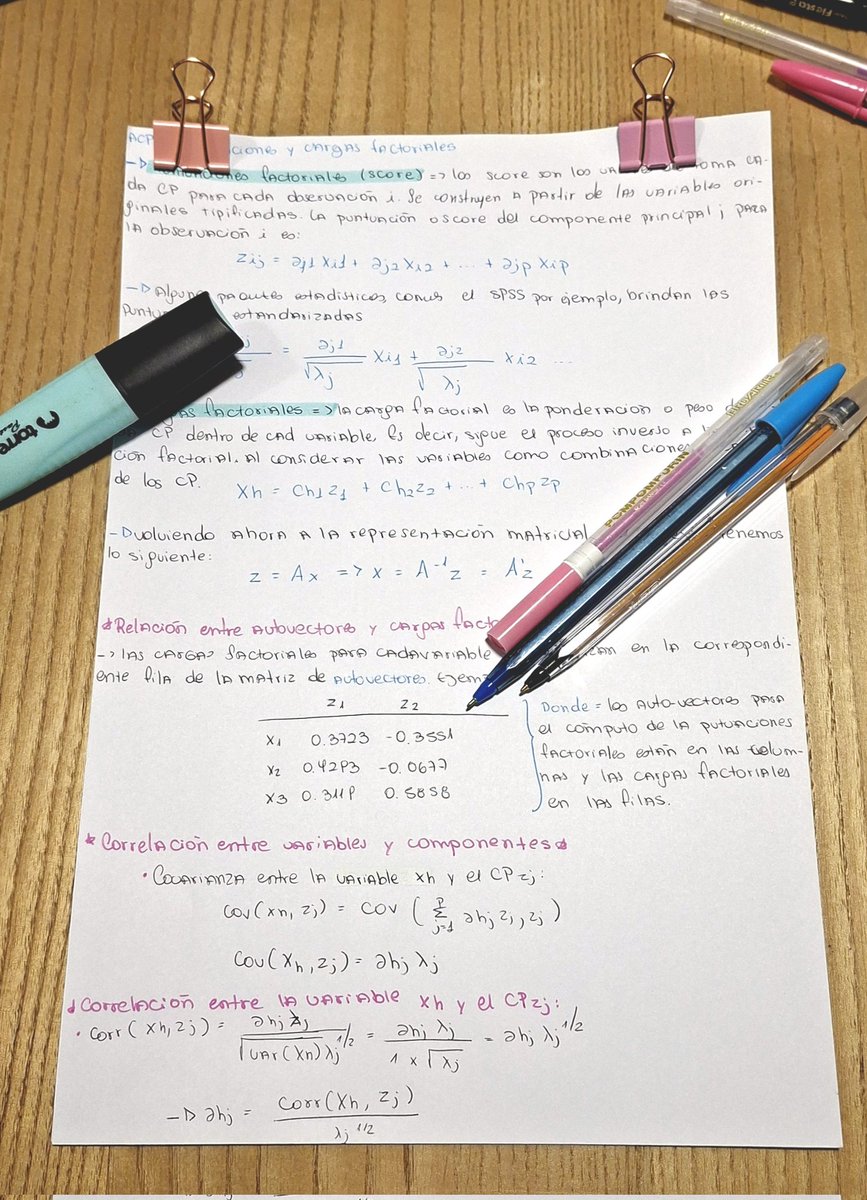 ACP ciones y cargas factoriales
factoriales (score) => los score son los toma ca-
da CP para cada observación i. Se construyen a partir de las variables ori-
ginales tipificadas. La puntuación o score del componente principal j para
la observación i es:
zij = aj1 Xi1 + aj2 Xi2 + ... + ajp Xip
paquetes estadísticos, como el SPSS por ejemplo, brindan las
estandarizadas
= aj1/√λj Xi1 + aj2/√λj Xi2 ...
factoriales => la carga factorial es la ponderación o peso
CP dentro de cad variable. Es decir, sigue el proceso inverso a
ción factorial. Al considerar las variables como combinaciones
de los CP.
Xh = Ch1 z1 + Ch2 z2 + ... + Chp zp
-> volviendo ahora a la representación matricial tenemos
lo siguiente:
z = Ax => x = A⁻¹z = A'z
*Relación entre autovectores y cargas
-> las cargas factoriales para cada variable en la correspondi-
ente fila de la matriz de autovectores.
z1 z2
X1 0.3723 -0.3551
X2 0.4293 -0.0677
X3 0.3119 0.5858
Donde = los auto-vectores para
el cómputo de la putuaciones
factoriales están en las colum-
nas y las cargas factoriales
en las filas.
*Correlación entre variables y componentes*
• Covarianza entre la variable xh y el CP zj:
Cov(xh, zj) = COV (Σ j=1 p ahj zj, zj)
Cov(Xh, zj) = ahj λj
Correlación entre la variable xh y el CP zj:
• Corr(Xh, zj) = ahj λj / √var(Xh) λj^1/2 = ahj λj / 1 x √λj = ahj λj^1/2
-> ahj = Corr(Xh, zj) / λj^1/2
POMPOMPURIN
Fiesta